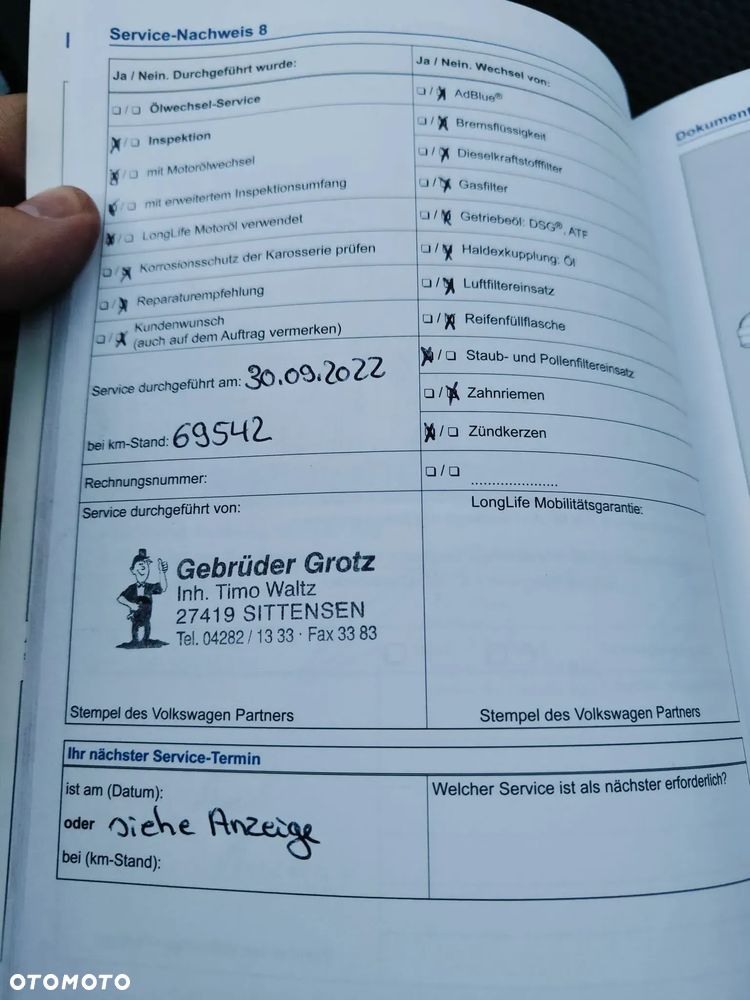 Service-Nachweis 8
Ja / Nein. Durchgeführt wurde:
Ölwechsel-Service
Inspektion
mit Motorölwechsel
mit erweitertem Inspektionsumfang
LongLife Motoröl verwendet
Korrosionsschutz der Karosserie prüfen
Reparaturempfehlung
Kundenwunsch
(auch auf dem Auftrag vermerken)
Service durchgeführt am: 30.09.2022
bei km-Stand: 69542
Rechnungsnummer:
Service durchgeführt von:
Gebrüder Grotz
Inh. Timo Waltz
27419 SITTENSEN
Tel. 04282 / 13 33 · Fax 33 83
Stempel des Volkswagen Partners
Ja / Nein. Wechsel von:
AdBlue®
Bremsflüssigkeit
Dieselkraftstofffilter
Gasfilter
Getriebeöl: DSG®, ATF
Haldexkupplung: Öl
Luftfiltereinsatz
Reifenfüllflasche
Staub- und Pollenfiltereinsatz
Zahnriemen
Zündkerzen
......................
LongLife Mobilitätsgarantie:
Stempel des Volkswagen Partners
Ihr nächster Service-Termin
ist am (Datum):
oder siehe Anzeige
bei (km-Stand):
Welcher Service ist als nächster erforderlich?
OTOMOTO